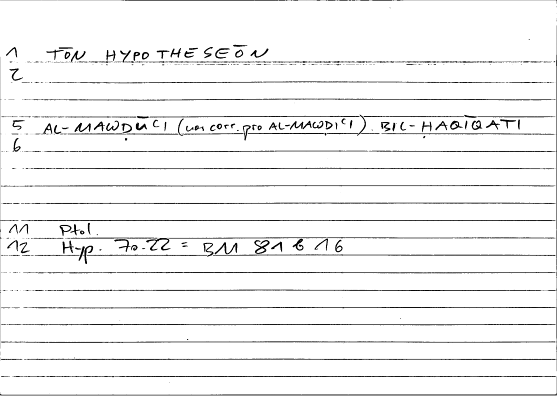 1 TŌN HYPOTHESEŌN
2
5 AL-MAWḌŪʿI (uos corr. pro AL-MAWḌIʿI) BIL-ḤAQĪQATI
6
11 Ptol.
12 Hyp. 70.22 = BM 81 b 16